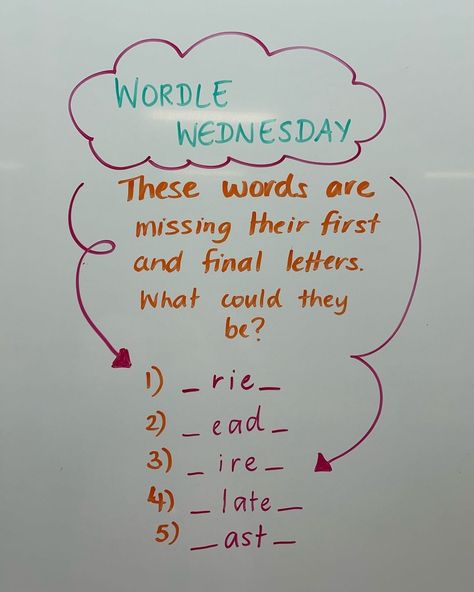 WORDLE
WEDNESDAY
These words are
missing their first
and final letters.
What could they
be?
1) _ rie _
2) _ ead _
3) _ ire _
4) _ late _
5) _ ast _